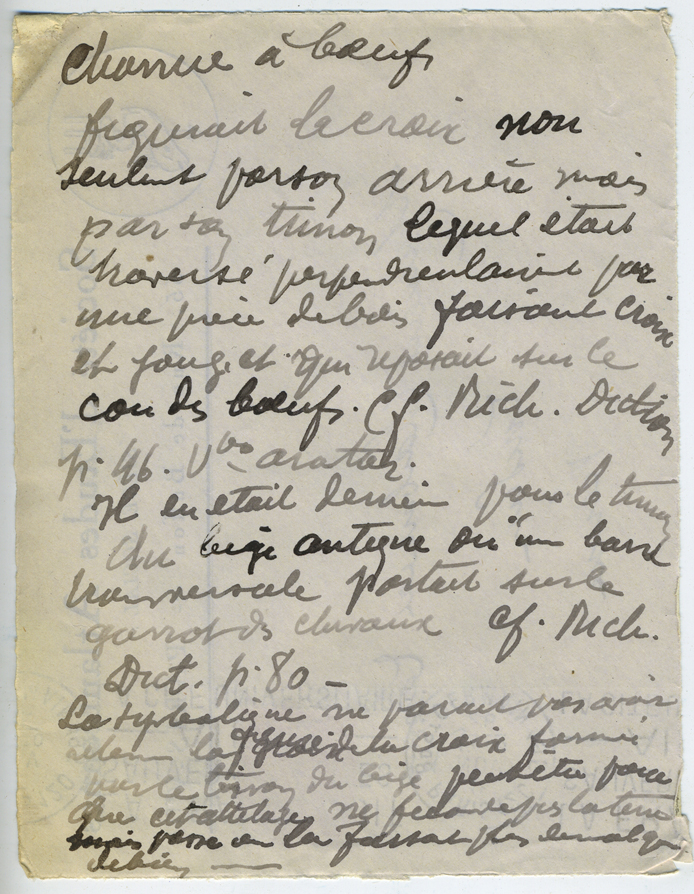 Charrue à bœufs
figurait la croix non
seulent par son arrière mais
par son timon lequel était
traversé perpendiculairent par
une pièce de bois faisant croix
et joug, et qui reposait sur le
cou des bœufs. Cf. Rich. Diction
p. 46. Vbo arator.
Il en était de même pour le timon
du bige antique où une barre
transversale portait sur le
garrot des chevaux cf. Rich.
Dict. p. 80 –
La symbolique ne parait pas avoir
retenu la de la croix formée
par le timon du bige peut être parce
que cet attelage ne féconde pas la terre
mais passe en la faisant plus de mal que
de bien —